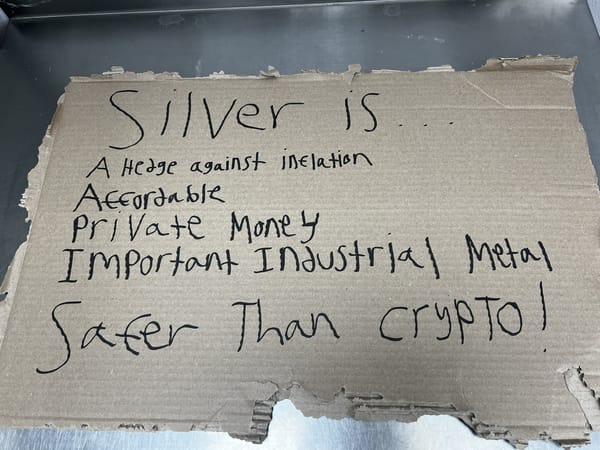 Silver is....
A Hedge against inflation
Affordable
Private Money
Important Industrial Metal
Safer Than crypto!